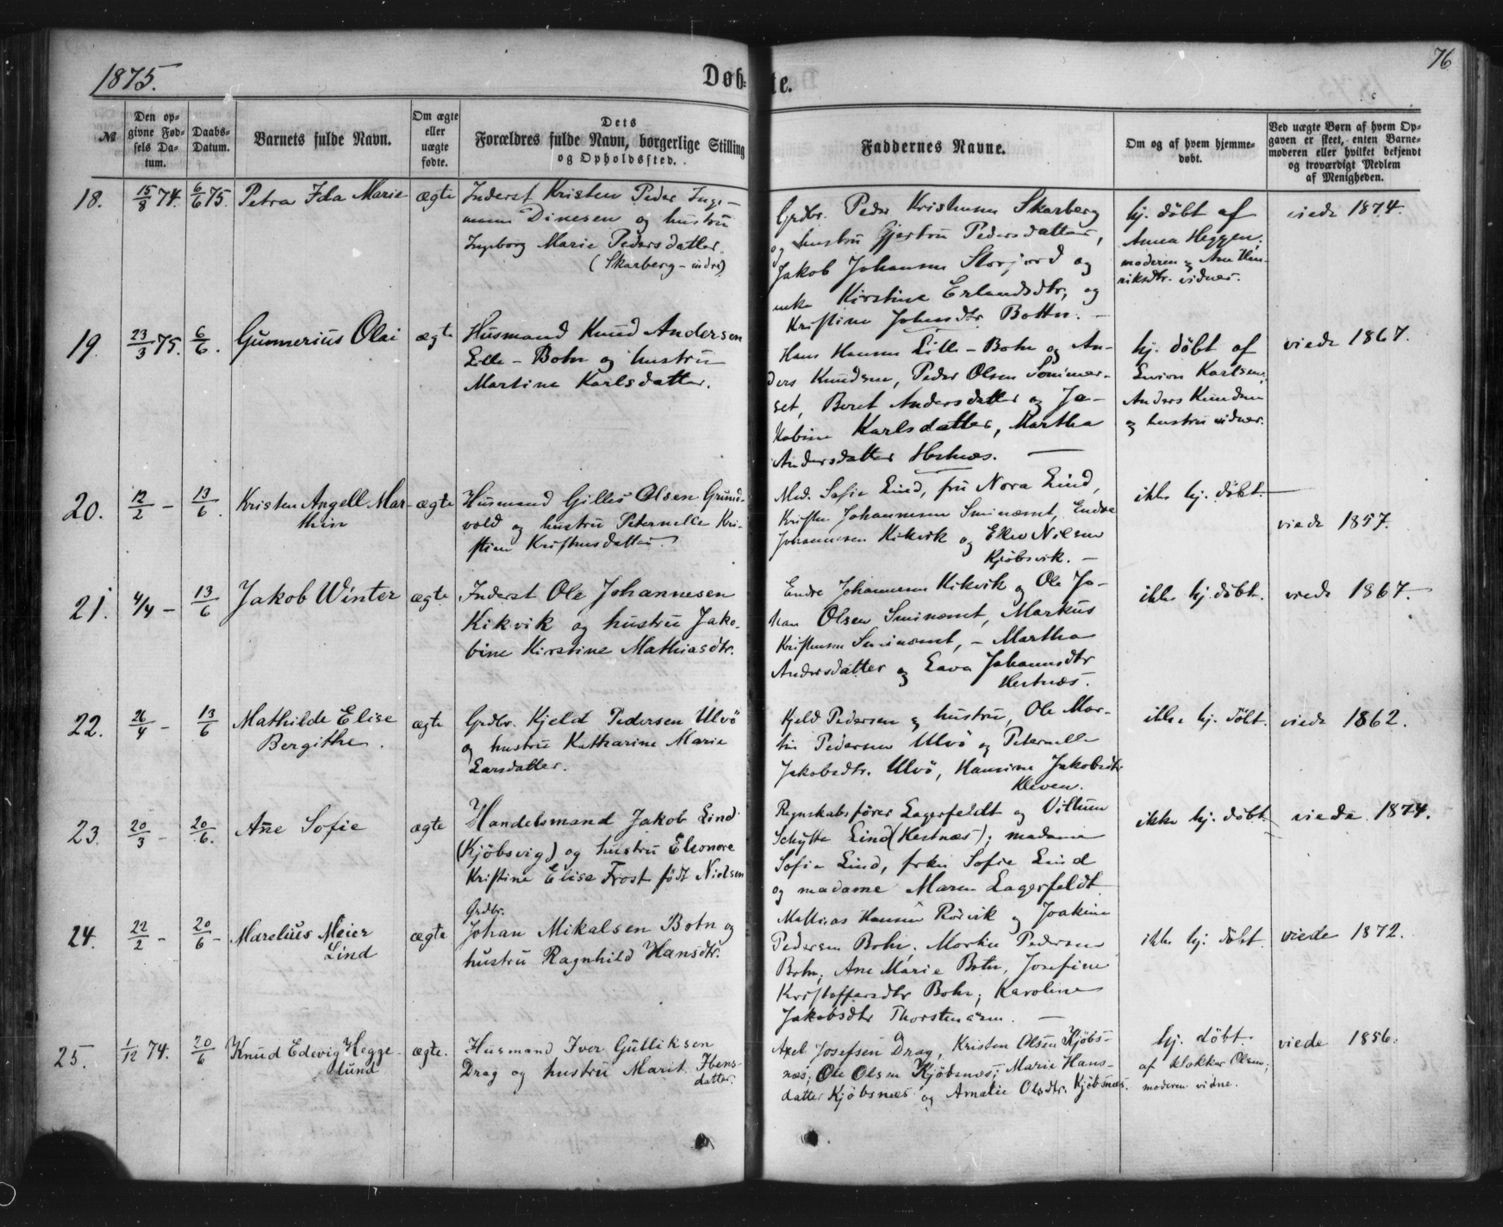 1875.
Døb-
te.
76
№
Den op-
givne Fød-
sels Da-
tum.
Daabs-
Datum.
Barnets fulde Navn.
Om ægte
eller
uægte
fødte.
Dets
Forældres fulde Navn, borgerlige Stilling
og Opholdssted.
Faddernes Navne.
Om og af hvem hjemme-
døbt.
Ved uægte Børn af hvem Op-
gaven er skeet, enten Barne-
moderen eller hvilket bekjendt
og troværdigt Medlem
af Menigheden.
18. 15/8 74. 6/6 75. Petra Ida Marie ægte
Inderst Kristen Peder Inge-
Dinesen og hustru
Ingeborg Marie Pedersdatter.
(Skarberg - indre)
Grdbr. Peder Kristensen Skarberg
og hustru Gjertru Pedersdatter,
Jakob Johansen Storjord og
enke Kirstine Erlandsdtr, og
Kristine Johnsdtr Botten. -
hj. døbt af
Anna Heggen;
moderen & Ane Hen-
riksdtr. vidner.
viede 1874.
19. 23/3 75. 6/6. Gunnerius Olai ægte
Husmand Knud Andersen
Lille-Botn og hustru
Martine Karlsdatter.
Hans Hansen Lille-Botn og An-
ders Knudsen, Peder Olsen Sommer-
set, Beret Andersdatter og Ja-
kobine Karlsdatter, Martha
Andersdatter Hestnæs. -
hj. døbt af
Karlsen;
Anders Knudsen
og hustru vidner.
viede 1867.
20. 12/2 - 13/6. Kristen Angell Mar-
thin
ægte
Husmand Gilles Olsen Grund-
vold og hustru Peternelle Kri-
stine Kristensdatter.
Mad. Sofie Lind, fru Nora Lind,
Kristen Johannesen Sminæmt, Endre
Johannesen Kikvik og Ellen Nilsen
Kjøbsvik. -
ikke hj. døbt.
viede 1857.
21. 4/4 - 13/6 Jakob Winter ægte
Inderst Ole Johannesen
Kikvik og hustru Jako-
bine Kirstine Mathiasdtr.
Endre Johannesen Kikvik og Ole Jo-
han Olsen Sminæmt, Markus
Kristensen Sminæmt, - Martha
Andersdatter og Lava Johannsdtr
Hestnæs.
ikke hj. døbt.
viede 1867.
22. 26/4 - 13/6 Mathilde Elise
Bergithe.
ægte
Grdbr. Kjeld Pedersen Ulvö
og hustru Katharine Marie
Larsdatter.
Kjeld Pedersen & hustru, Ole Mar-
tin Pedersen Ulvö og Peternelle
Jakobsdtr. Ulvö, Hansine Jakobsdtr
Kleven.
ikke hj. døbt.
viede 1862.
23. 20/3 - 20/6. Ane Sofie ægte
Handelsmand Jakob Lind
(Kjöbsvig) og hustru Eleonore
Kristine Elise Frost født Nielsen
Regnskabsfører Lagerfeldt og Villum
Schytte Lind (Hestnæs); madame
Sofie Lind, frkn Sofie Lind
og madame Maren Lagerfeldt
ikke hj. døbt
viede 1874.
24. 22/2 - 20/6 - Marelius Meier
Lind
ægte
Grdbr.
Johan Mikalsen Botn og
hustru Ragnhild Hansdtr.
Mathias Hansen Rödvik og Joakim
Pedersen Botn; Morten Pedersen
Botn; Ane Marie Botn, Josefine
Kristoffersdtr Botn; Karoline
Jakobsdtr -
ikke hj. døbt.
viede 1872.
25. 1/12 74. 20/6 Knud Edevig Hegge-
lund
ægte.
Husmand Iver Gulliksen
Drag og hustru Marit Ibens-
datter.
Axel Josefsen Drag, Kristen Olsen Kjöbs-
næs; Ole Olsen Kjöbsnæs; Marie Hans-
datter Kjöbsnæs og Amalie Olsdtr. Kjöbsnæs.
hj. døbt
af klokker Olsen;
moderen vidne.
viede 1856.